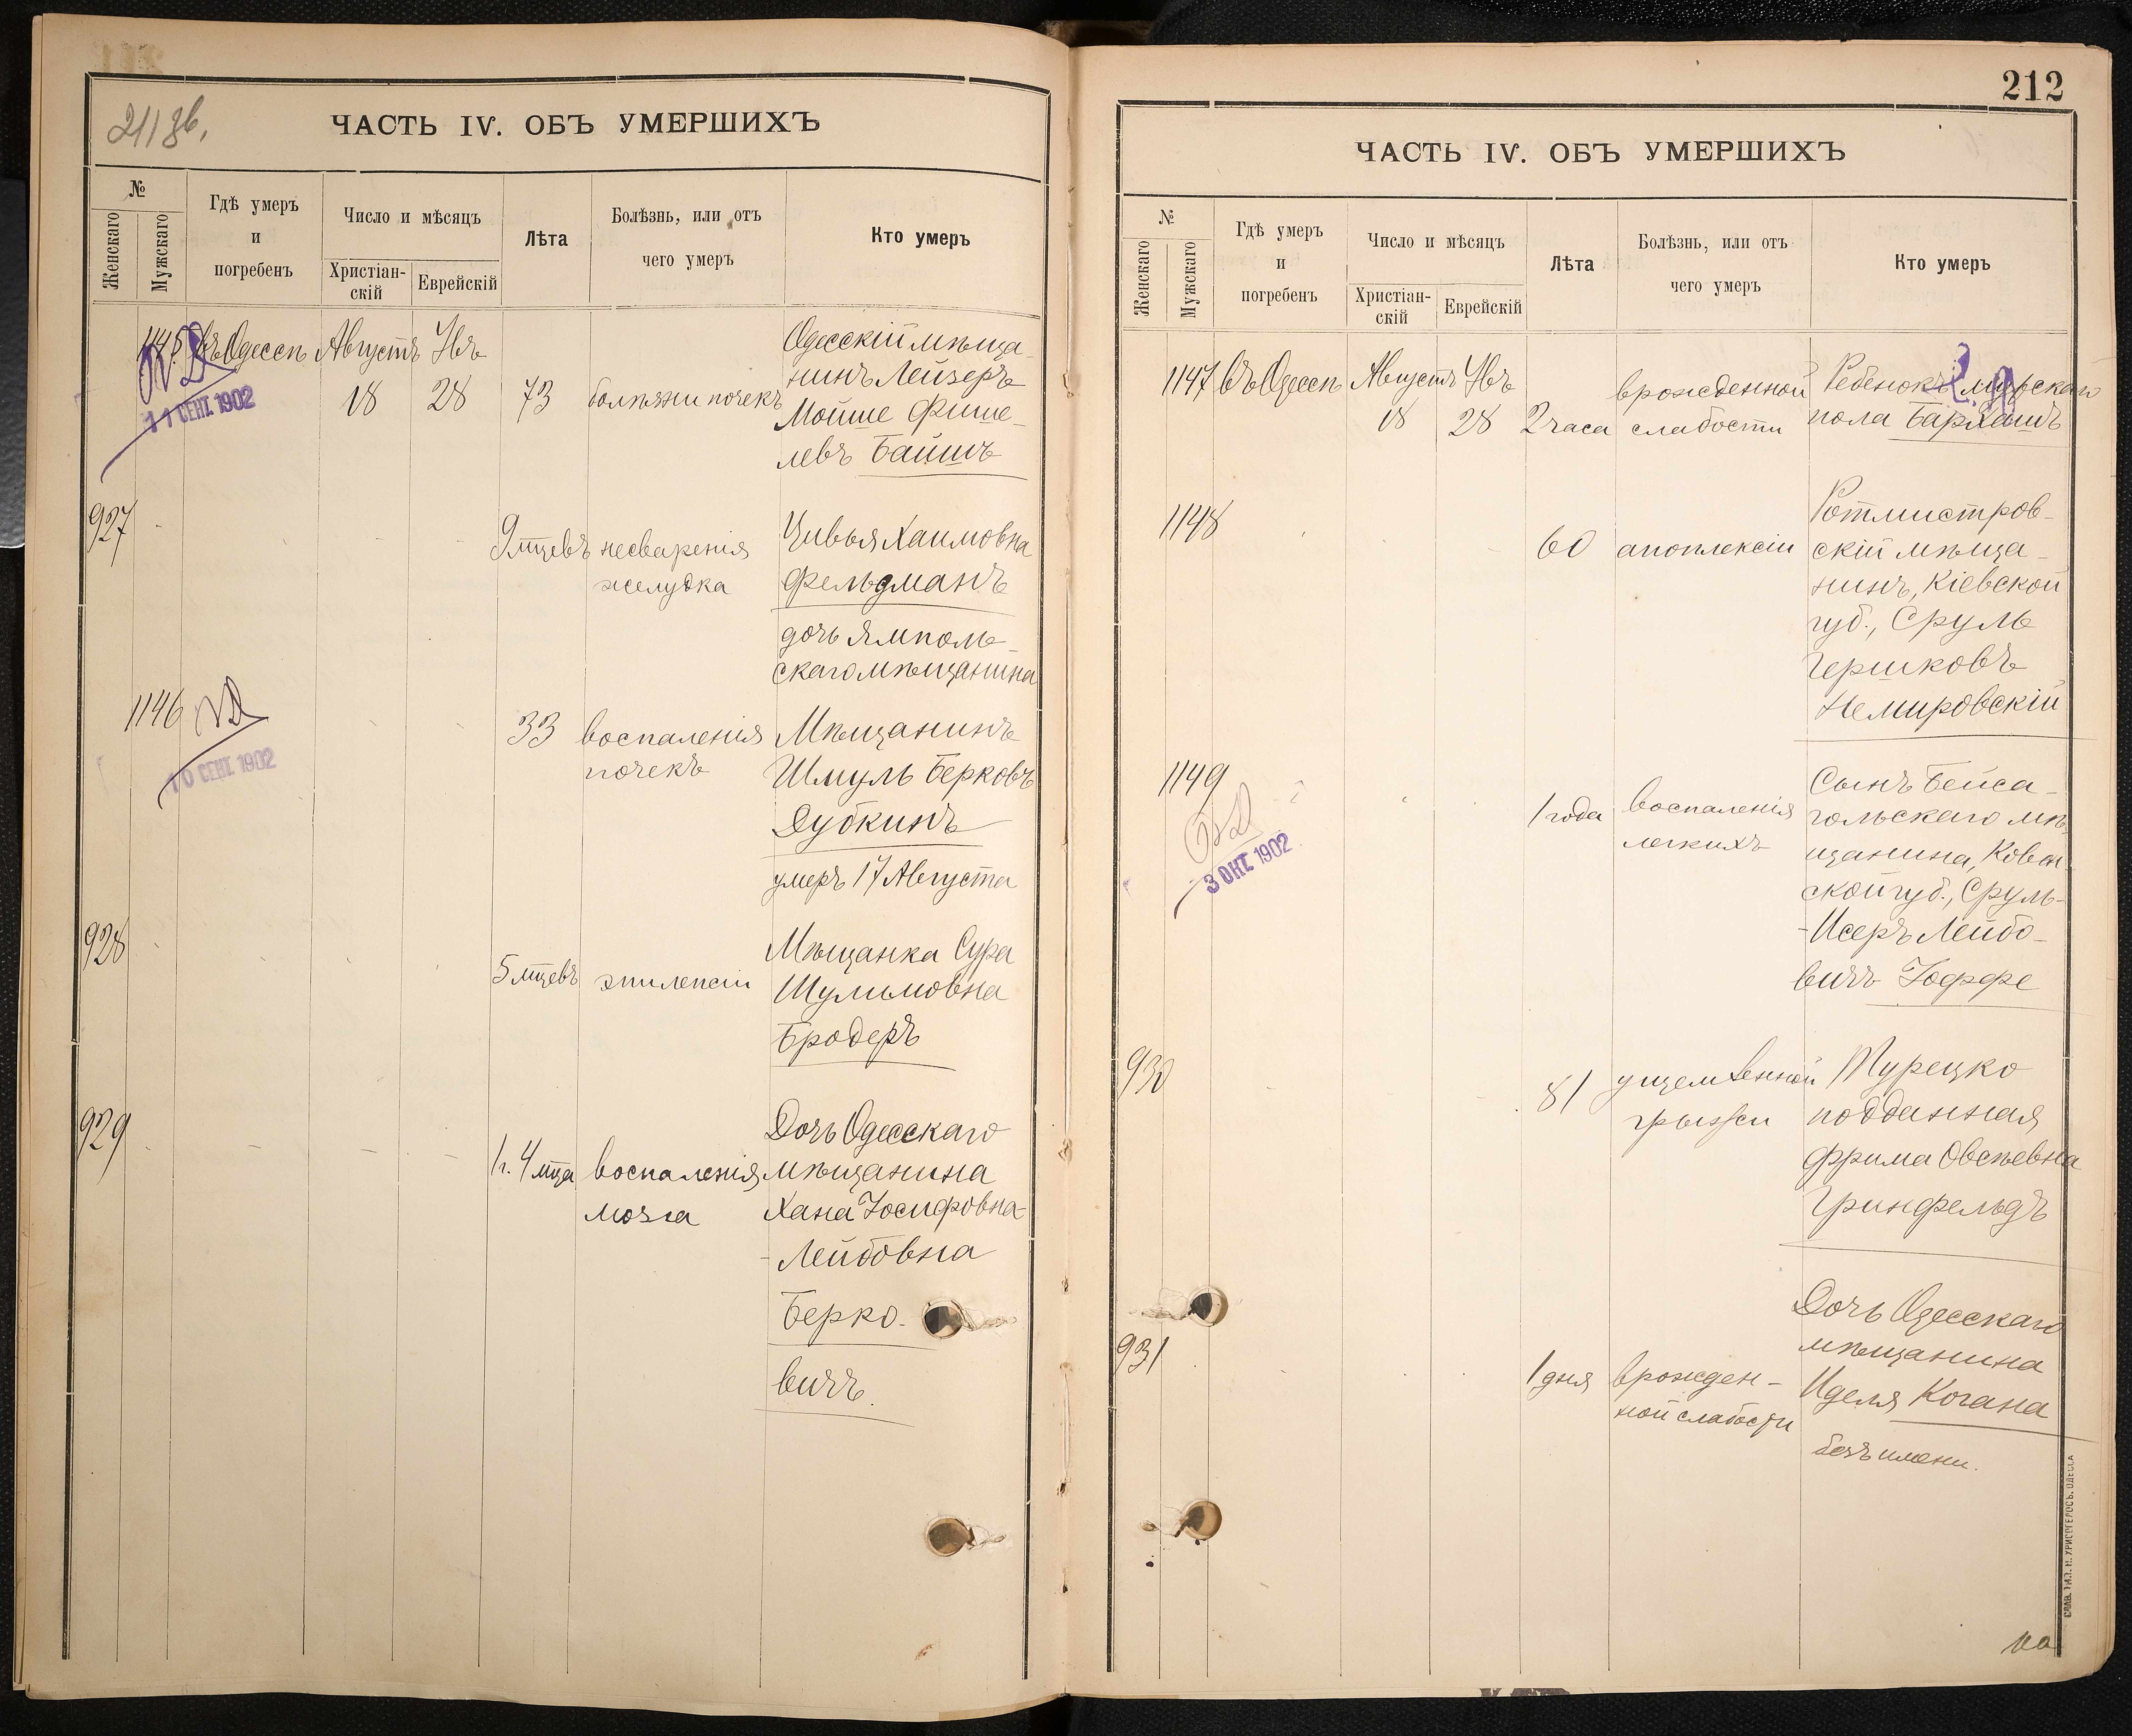 211 зв.
ЧАСТЬ IV. ОБЪ УМЕРШИХЪ
№
Женскаго
Мужскаго
Гдѣ умеръ
и
погребенъ
Число и мѣсяцъ
Христіан-
скій
Еврейскій
Лѣта
Болѣзнь, или отъ
чего умеръ
Кто умеръ
1145
въ Одессѣ
Августъ
18
Ябъ
28
73
болѣзни почекъ
Одесскій мѣща-
нинъ Лейзеръ
Мойше Фише-
левъ Баишъ
11 СЕНТ. 1902
927
9 мцевъ
несваренія
желудка
Цивья Хаимовна
Фельдманъ
дочь Ямполь-
скаго мѣщанина
1146
33
воспаленія
почекъ
Мѣщанинъ
Шмуль Берковъ
Дубкинъ
умеръ 17 Августа
10 СЕНТ. 1902
928
5 мцевъ
эпилепсіи
Мѣщанка Сура
Шулимовна
Бродеръ
929
1 г. 4 мца
воспаленія
мозга
Дочь Одесскаго
мѣщанина
Хана Іосифовна-
-Лейбовна
Берко-
вичъ.
212
ЧАСТЬ IV. ОБЪ УМЕРШИХЪ
№
Женскаго
Мужскаго
Гдѣ умеръ
и
погребенъ
Число и мѣсяцъ
Христіан-
скій
Еврейскій
Лѣта
Болѣзнь, или отъ
чего умеръ
Кто умеръ
1147
въ Одессѣ
Августъ
18
Ябъ
28
2 часа
врожденной
слабости
Ребенокъ мужскаго
пола Бархашъ
1148
60
апоплексіи
Ротмистров-
скій мѣща-
нинъ, Кіевской
губ., Сруль
Гершковъ
Немировскій
1149
1 года
воспаленія
легкихъ
Сынъ Бейса-
гольскаго мѣ-
щанина, Ковен-
ской губ., Сруль-
-Исеръ Лейбо-
вичъ Іоффе
3 ОКТ. 1902
930
81
ущемленной
грыжи
Турецко
подданная
Фрима Овсѣевна
Гринфельдъ
931
1 дня
врожден-
ной слабости
Дочь Одесскаго
мѣщанина
Иделя Когана
безъ имени.
СЛАВ. ТИП. Н. ХРИСОГЕЛОСЪ. ОДЕССА